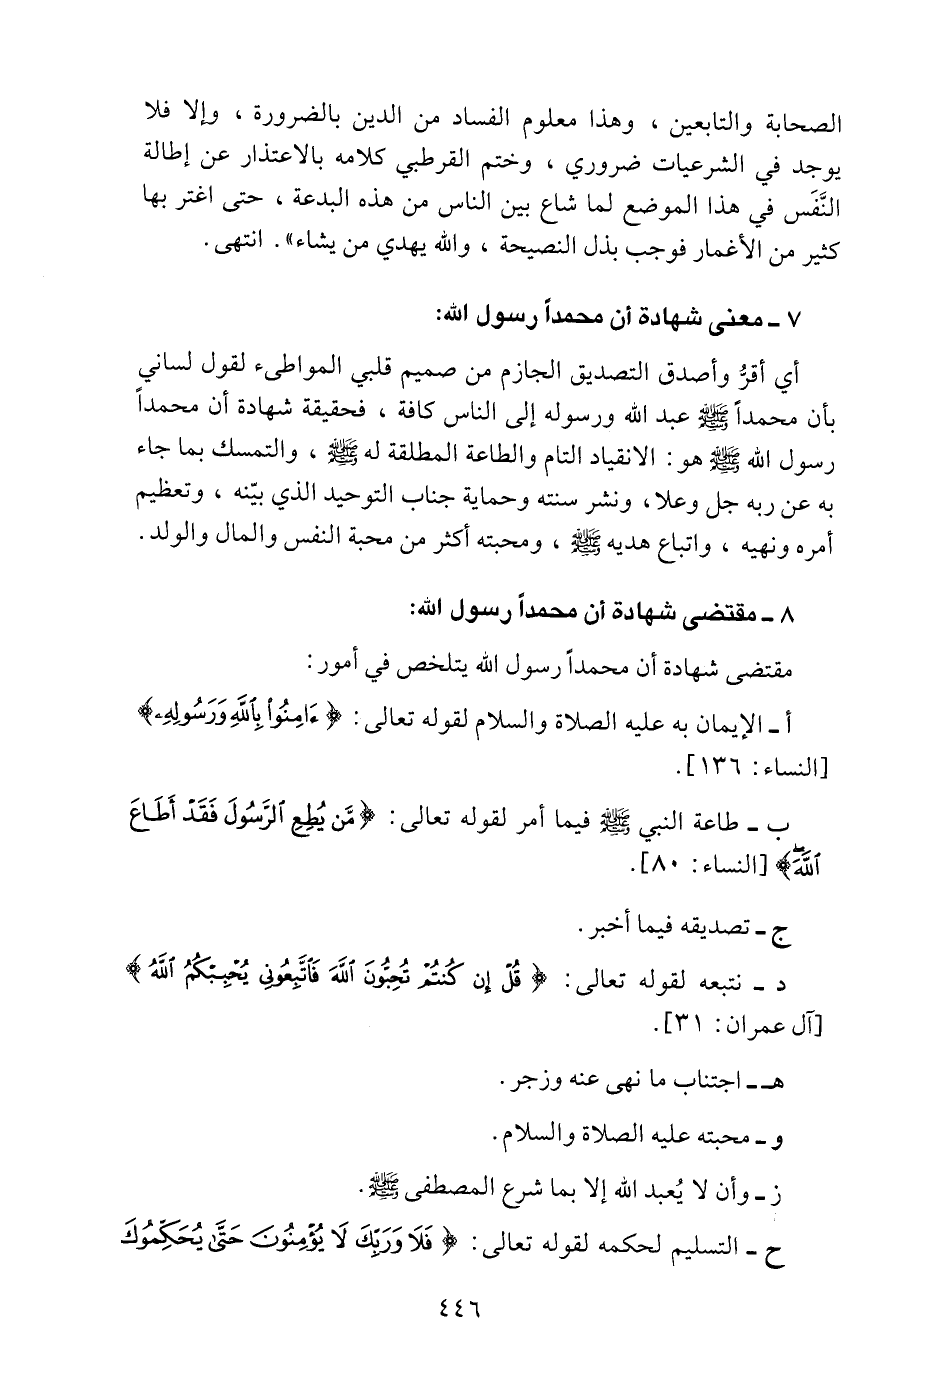 الصحابة والتابعين ، وهذا معلوم الفساد من الدين بالضرورة ، وإلا فلا
يوجد في الشرعيات ضروري ، وختم القرطبي كلامه بالاعتذار عن إطالة
النَّفَس في هذا الموضع لما شاع بين الناس من هذه البدعة ، حتى اغتر بها
كثير من الأغمار فوجب بذل النصيحة ، والله يهدي من يشاء». انتهى.
٧ ـ معنى شهادة أن محمداً رسول الله:
أي أقرُّ وأصدق التصديق الجازم من صميم قلبي المواطىء لقول لساني
بأن محمداً ﷺ عبد الله ورسوله إلى الناس كافة ، فحقيقة شهادة أن محمداً
رسول الله ﷺ هو : الانقياد التام والطاعة المطلقة له ﷺ ، والتمسك بما جاء
به عن ربه جل وعلا، ونشر سنته وحماية جناب التوحيد الذي بيّنه ، وتعظيم
أمره ونهيه ، واتباع هديه ﷺ ، ومحبته أكثر من محبة النفس والمال والولد.
٨ ـ مقتضى شهادة أن محمداً رسول الله:
مقتضى شهادة أن محمداً رسول الله يتلخص في أمور:
أ ـ الإيمان به عليه الصلاة والسلام لقوله تعالى: ﴿ ءَامِنُواْ بِٱللَّهِ وَرَسُولِهِۦ﴾
[النساء: ١٣٦].
ب ـ طاعة النبي ﷺ فيما أمر لقوله تعالى: ﴿مَّن يُطِعِ ٱلرَّسُولَ فَقَدْ أَطَاعَ
ٱللَّهَۖ﴾ [النساء: ٨٠].
ج ـ تصديقه فيما أخبر.
د ـ نتبعه لقوله تعالى: ﴿ قُلْ إِن كُنتُمْ تُحِبُّونَ ٱللَّهَ فَٱتَّبِعُونِي يُحْبِبْكُمُ ٱللَّهُ ﴾
[آل عمران: ٣١].
هـ ـ اجتناب ما نهى عنه وزجر.
و ـ محبته عليه الصلاة والسلام.
ز ـ وأن لا يُعبد الله إلا بما شرع المصطفى ﷺ.
ح ـ التسليم لحكمه لقوله تعالى: ﴿ فَلَا وَرَبِّكَ لَا يُؤْمِنُونَ حَتَّىٰ يُحَكِّمُوكَ
٤٤٦